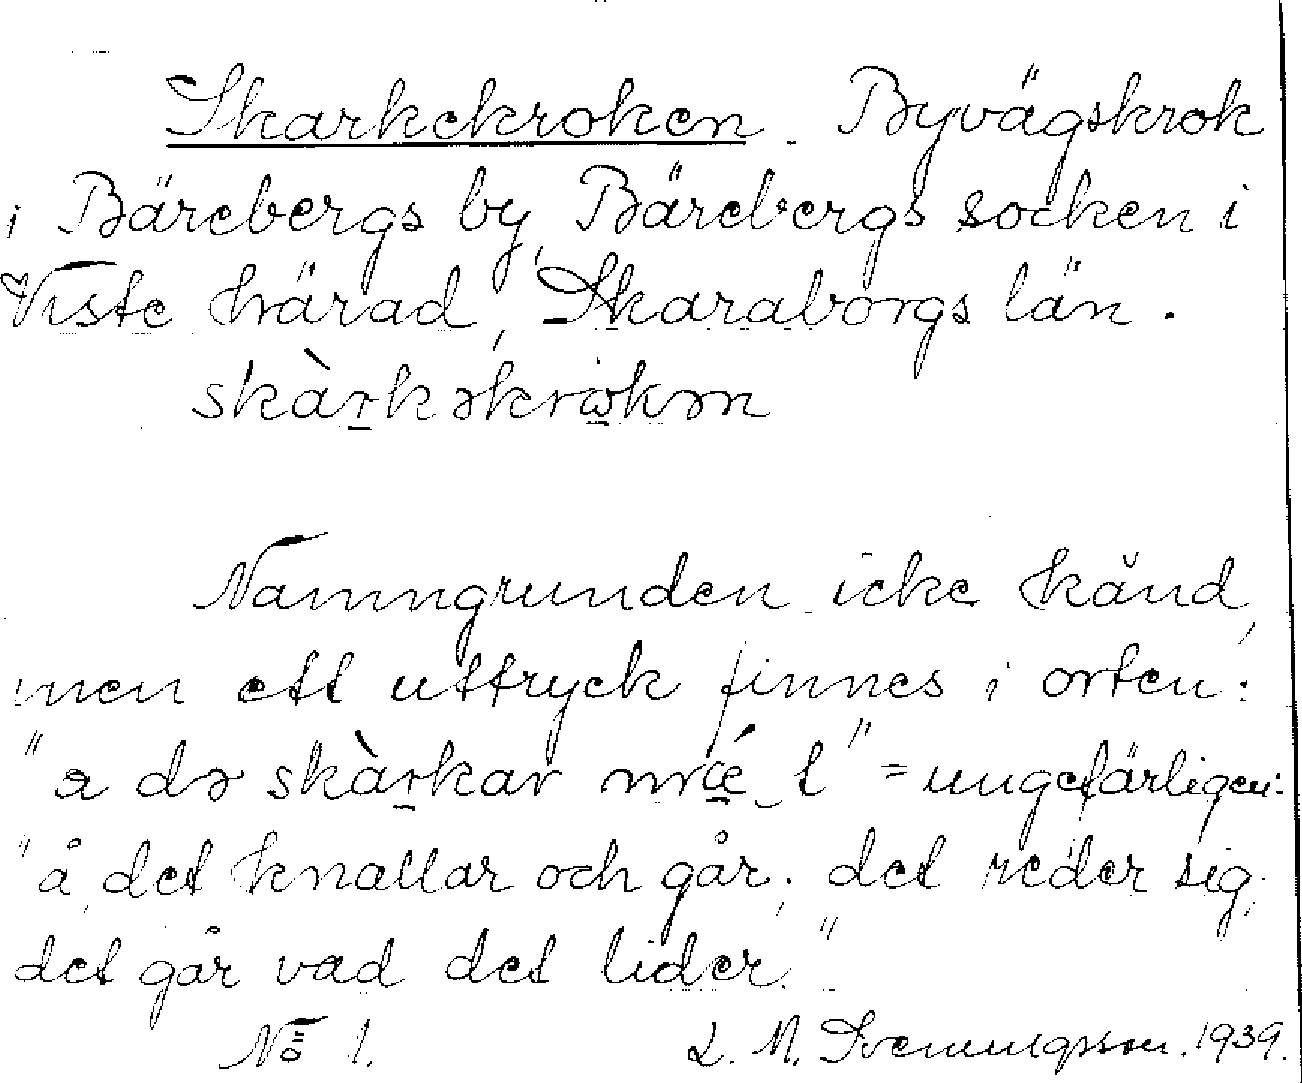 Skarkekroken. Byvägskrok
i Bärebergs by, Bärebergs socken i
Viste härad, Skaraborgs län.
skàrkəkrωkən
Namngrunden icke känd,
men ett uttryck finnes i orten:
"a də skàrkar mǽ t" = ungefärligen:
"å, det knallar och går; det reder sig;
det går vad det lider."
No 1. L. M. Svenungsson. 1939.